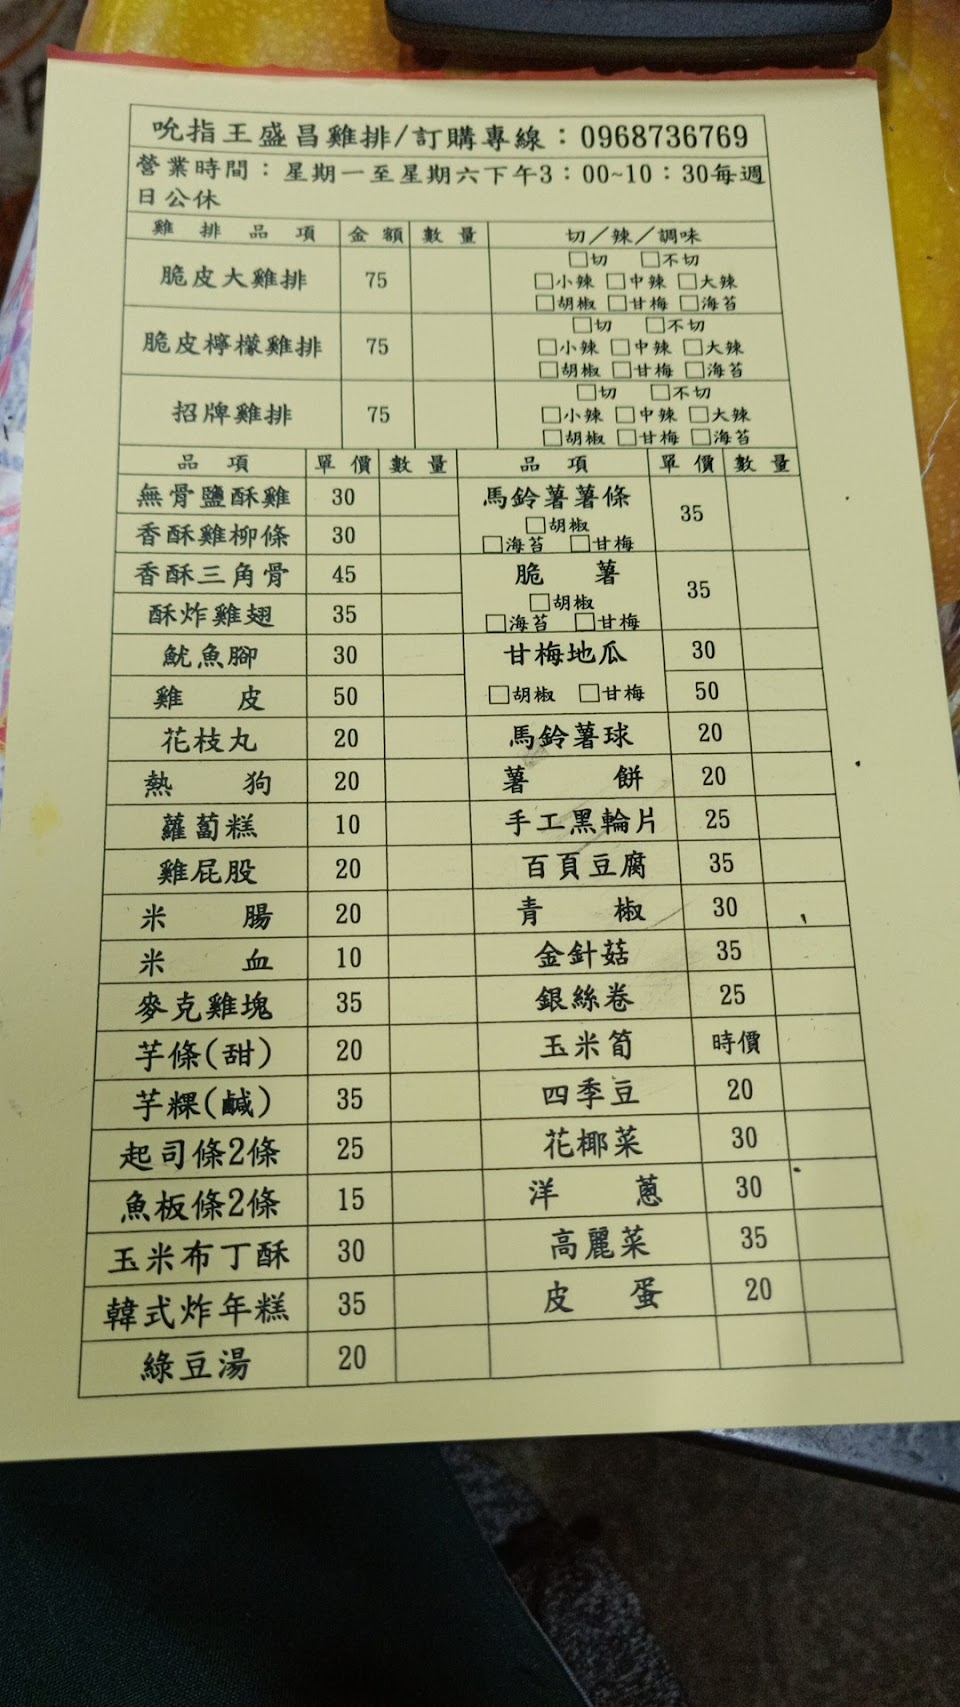 吮指王盛昌雞排/訂購專線：0968736769
營業時間：星期一至星期六下午3：00~10：30每週
日公休
雞排品項 金額 數量 切／辣／調味
脆皮大雞排 75 □切 □不切
□小辣 □中辣 □大辣
□胡椒 □甘梅 □海苔
脆皮檸檬雞排 75 □切 □不切
□小辣 □中辣 □大辣
□胡椒 □甘梅 □海苔
招牌雞排 75 □切 □不切
□小辣 □中辣 □大辣
□胡椒 □甘梅 □海苔
品項 單價 數量 品項 單價 數量
無骨鹽酥雞 30 馬鈴薯薯條 35
□胡椒
香酥雞柳條 30 □海苔 □甘梅
香酥三角骨 45 脆薯 35
□胡椒
酥炸雞翅 35 □海苔 □甘梅
魷魚腳 30 甘梅地瓜 30
雞皮 50 □胡椒 □甘梅 50
花枝丸 20 馬鈴薯球 20
熱狗 20 薯餅 20
蘿蔔糕 10 手工黑輪片 25
雞屁股 20 百頁豆腐 35
米腸 20 青椒 30
米血 10 金針菇 35
麥克雞塊 35 銀絲卷 25
芋條(甜) 20 玉米筍 時價
芋粿(鹹) 35 四季豆 20
起司條2條 25 花椰菜 30
魚板條2條 15 洋蔥 30
玉米布丁酥 30 高麗菜 35
韓式炸年糕 35 皮蛋 20
綠豆湯 20